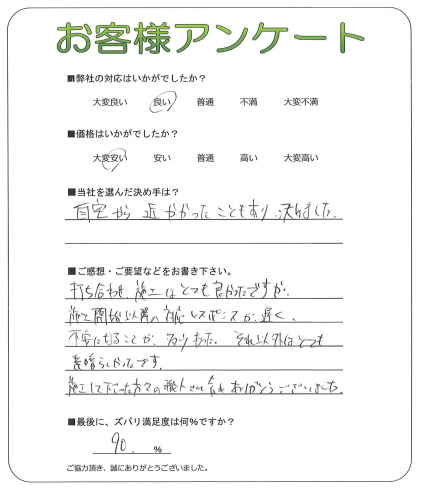 お客様アンケート
■弊社の対応はいかがでしたか？
大変良い 良い 普通 不満 大変不満
■価格はいかがでしたか？
大変安い 安い 普通 高い 大変高い
■当社を選んだ決め手は？
自宅から近かかったこともあり決めました。
■ご感想・ご要望などをお書き下さい。
打ち合わせ、施工はとても良かったですが、
施工開始以降の対応レスポンスが遅く、
不安になることが、多々あった。それ以外はとても
素晴らしかったです。
施工して下さった方々の職人さん含めありがとうございました。
■最後に、ズバリ満足度は何%ですか？
90. %
ご協力頂き、誠にありがとうございました。